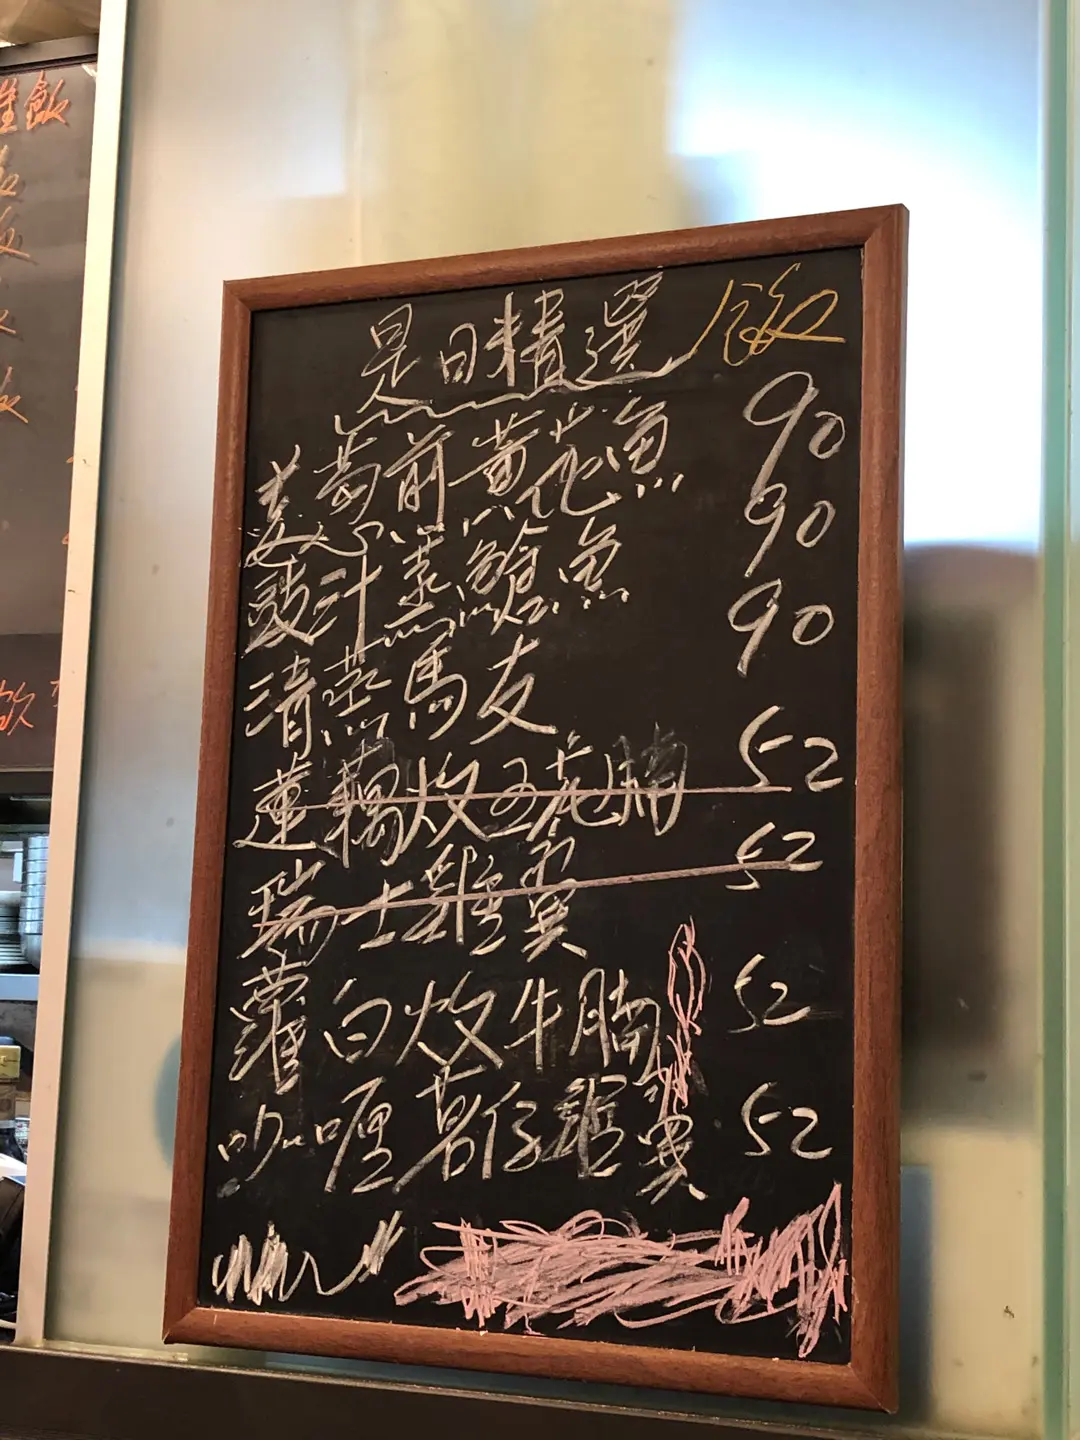 是日精選飯
姜葱煎黃花魚 90
豉汁蒸䱽魚 90
清蒸馬友 90
蓮藕炆五花腩 52
瑞士雞翼 52
蘿白炆牛腩 52
咖喱薯仔雞翼 52